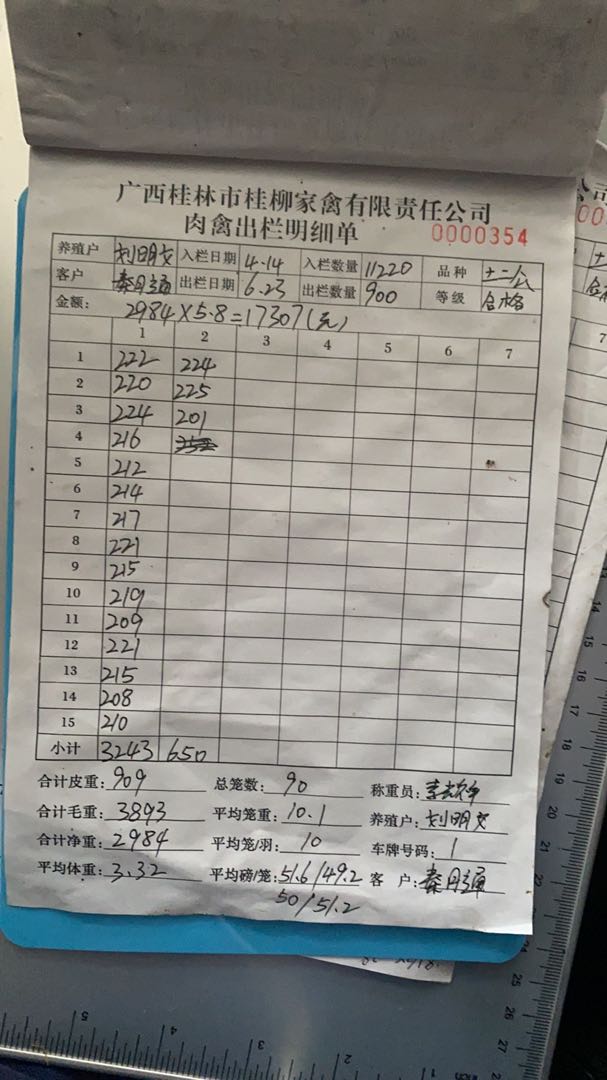 广西桂林市桂柳家禽有限责任公司
肉禽出栏明细单 0000354
养殖户 刘明文 入栏日期 4.14 入栏数量 11220 品种 土二公
客户 秦月通 出栏日期 6.23 出栏数量 900 等级 合格
金额: 2984×5.8=17307(元)
1 2 3 4 5 6 7
1 222 224
2 220 225
3 224 201
4 216
5 212
6 214
7 217
8 221
9 215
10 219
11 209
12 221
13 215
14 208
15 210
小计 3243 650
合计皮重: 909 总笼数: 90 称重员:
合计毛重: 3893 平均笼重: 10.1 养殖户: 刘明文
合计净重: 2984 平均笼/羽: 10 车牌号码: 1
平均体重: 3.32 平均磅/笼: 51.6/49.2 客户: 秦月通
50/51.2